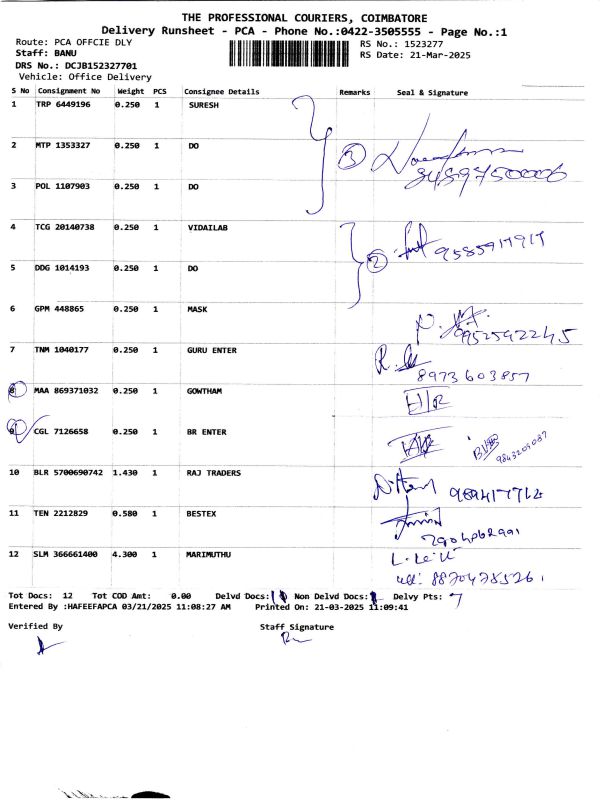 THE PROFESSIONAL COURIERS, COIMBATORE
Delivery Runsheet - PCA - Phone No.:0422-3505555 - Page No.:1
Route: PCA OFFCIE DLY RS No.: 1523277
Staff: BANU RS Date: 21-Mar-2025
DRS No.: DCJB152327701
Vehicle: Office Delivery
S No Consignment No Weight PCS Consignee Details Remarks Seal & Signature
1 TRP 6449196 0.250 1 SURESH
2 MTP 1353327 0.250 1 DO
3
8489750006
3 POL 1107903 0.250 1 DO
4 TCG 20140738 0.250 1 VIDAILAB
9585917917
2
5 DDG 1014193 0.250 1 DO
6 GPM 448865 0.250 1 MASK
9952592245
7 TNM 1040177 0.250 1 GURU ENTER
8973603857
8 MAA 869371032 0.250 1 GOWTHAM
9 CGL 7126658 0.250 1 BR ENTER
9843205087
10 BLR 5700690742 1.430 1 RAJ TRADERS
11 TEN 2212829 0.580 1 BESTEX
12 SLM 366661400 4.300 1 MARIMUTHU
Tot Docs: 12 Tot COD Amt: 0.00 Delvd Docs: Non Delvd Docs: Delvy Pts: 7
Entered By :HAFEEFAPCA 03/21/2025 11:08:27 AM Printed On: 21-03-2025 11:09:41
Verified By Staff Signature